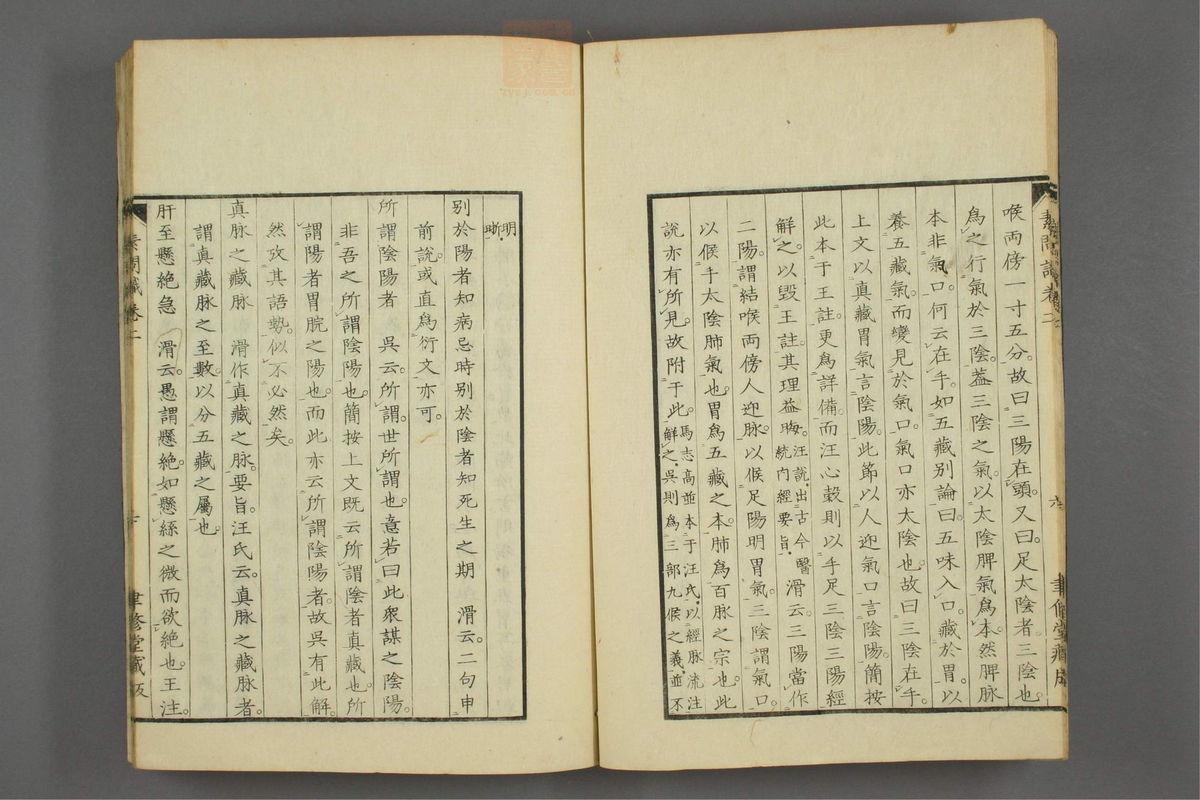 喉兩傍一寸五分。故曰三陽在頭。又曰。足太陰者。三陰也
爲之行氣於三陰。葢三陰之氣。以太陰脾氣爲本。然脾脉
本非氣口。何云在手。如五藏别論曰。五味入口。藏於胃。以
養五藏氣。而變見於氣口。氣口亦太陰也。故曰三陰在手。
上文以真藏胃氣言陰陽。此節以人迎氣口言陰陽。簡按
此本于王註。更爲詳備。而汪心穀則以手足三陰三陽經
解之。以毀王註。其理益晦。汪說。出古今醫
統内經要旨。滑云。三陽當作
二陽。謂結喉兩傍人迎脉。以候足陽明胃氣。三陰謂氣口。
以候手太陰肺氣也。胃爲五藏之本。肺爲百脉之宗也。此
說亦有所見。故附于此。馬志高並本于汪氏。以經脉流注
解之。吳則爲三部九候之義。並不
明
晰
别於陽者知病忌時别於陰者知死生之期　滑云。二句申
前說。或直爲衍文亦可。
所謂陰陽者　吳云。所謂。世所謂也。意若曰此衆謀之陰陽。
非吾之所謂陰陽也。簡按上文既云所謂陰者真藏也。所
謂陽者胃脘之陽也。而此亦云所謂陰陽者。故吳有此解。
然攷其語勢。似不必然矣。
真脉之藏脉　滑作真藏之脉。要旨。汪氏云。真脉之藏脉者。
謂真藏脉之至數。以分五藏之屬也。
肝至懸絶急　滑云。愚謂懸絶。如懸絲之微而欲絶也。王注
素問識卷二
十
聿修堂藏版